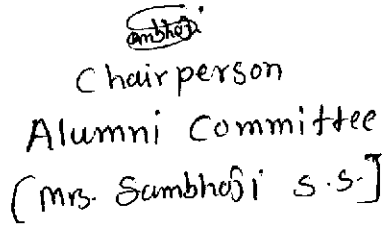 ambhoji
Chairperson
Alumni Committee
[Mrs. Sambhoji S.S.]